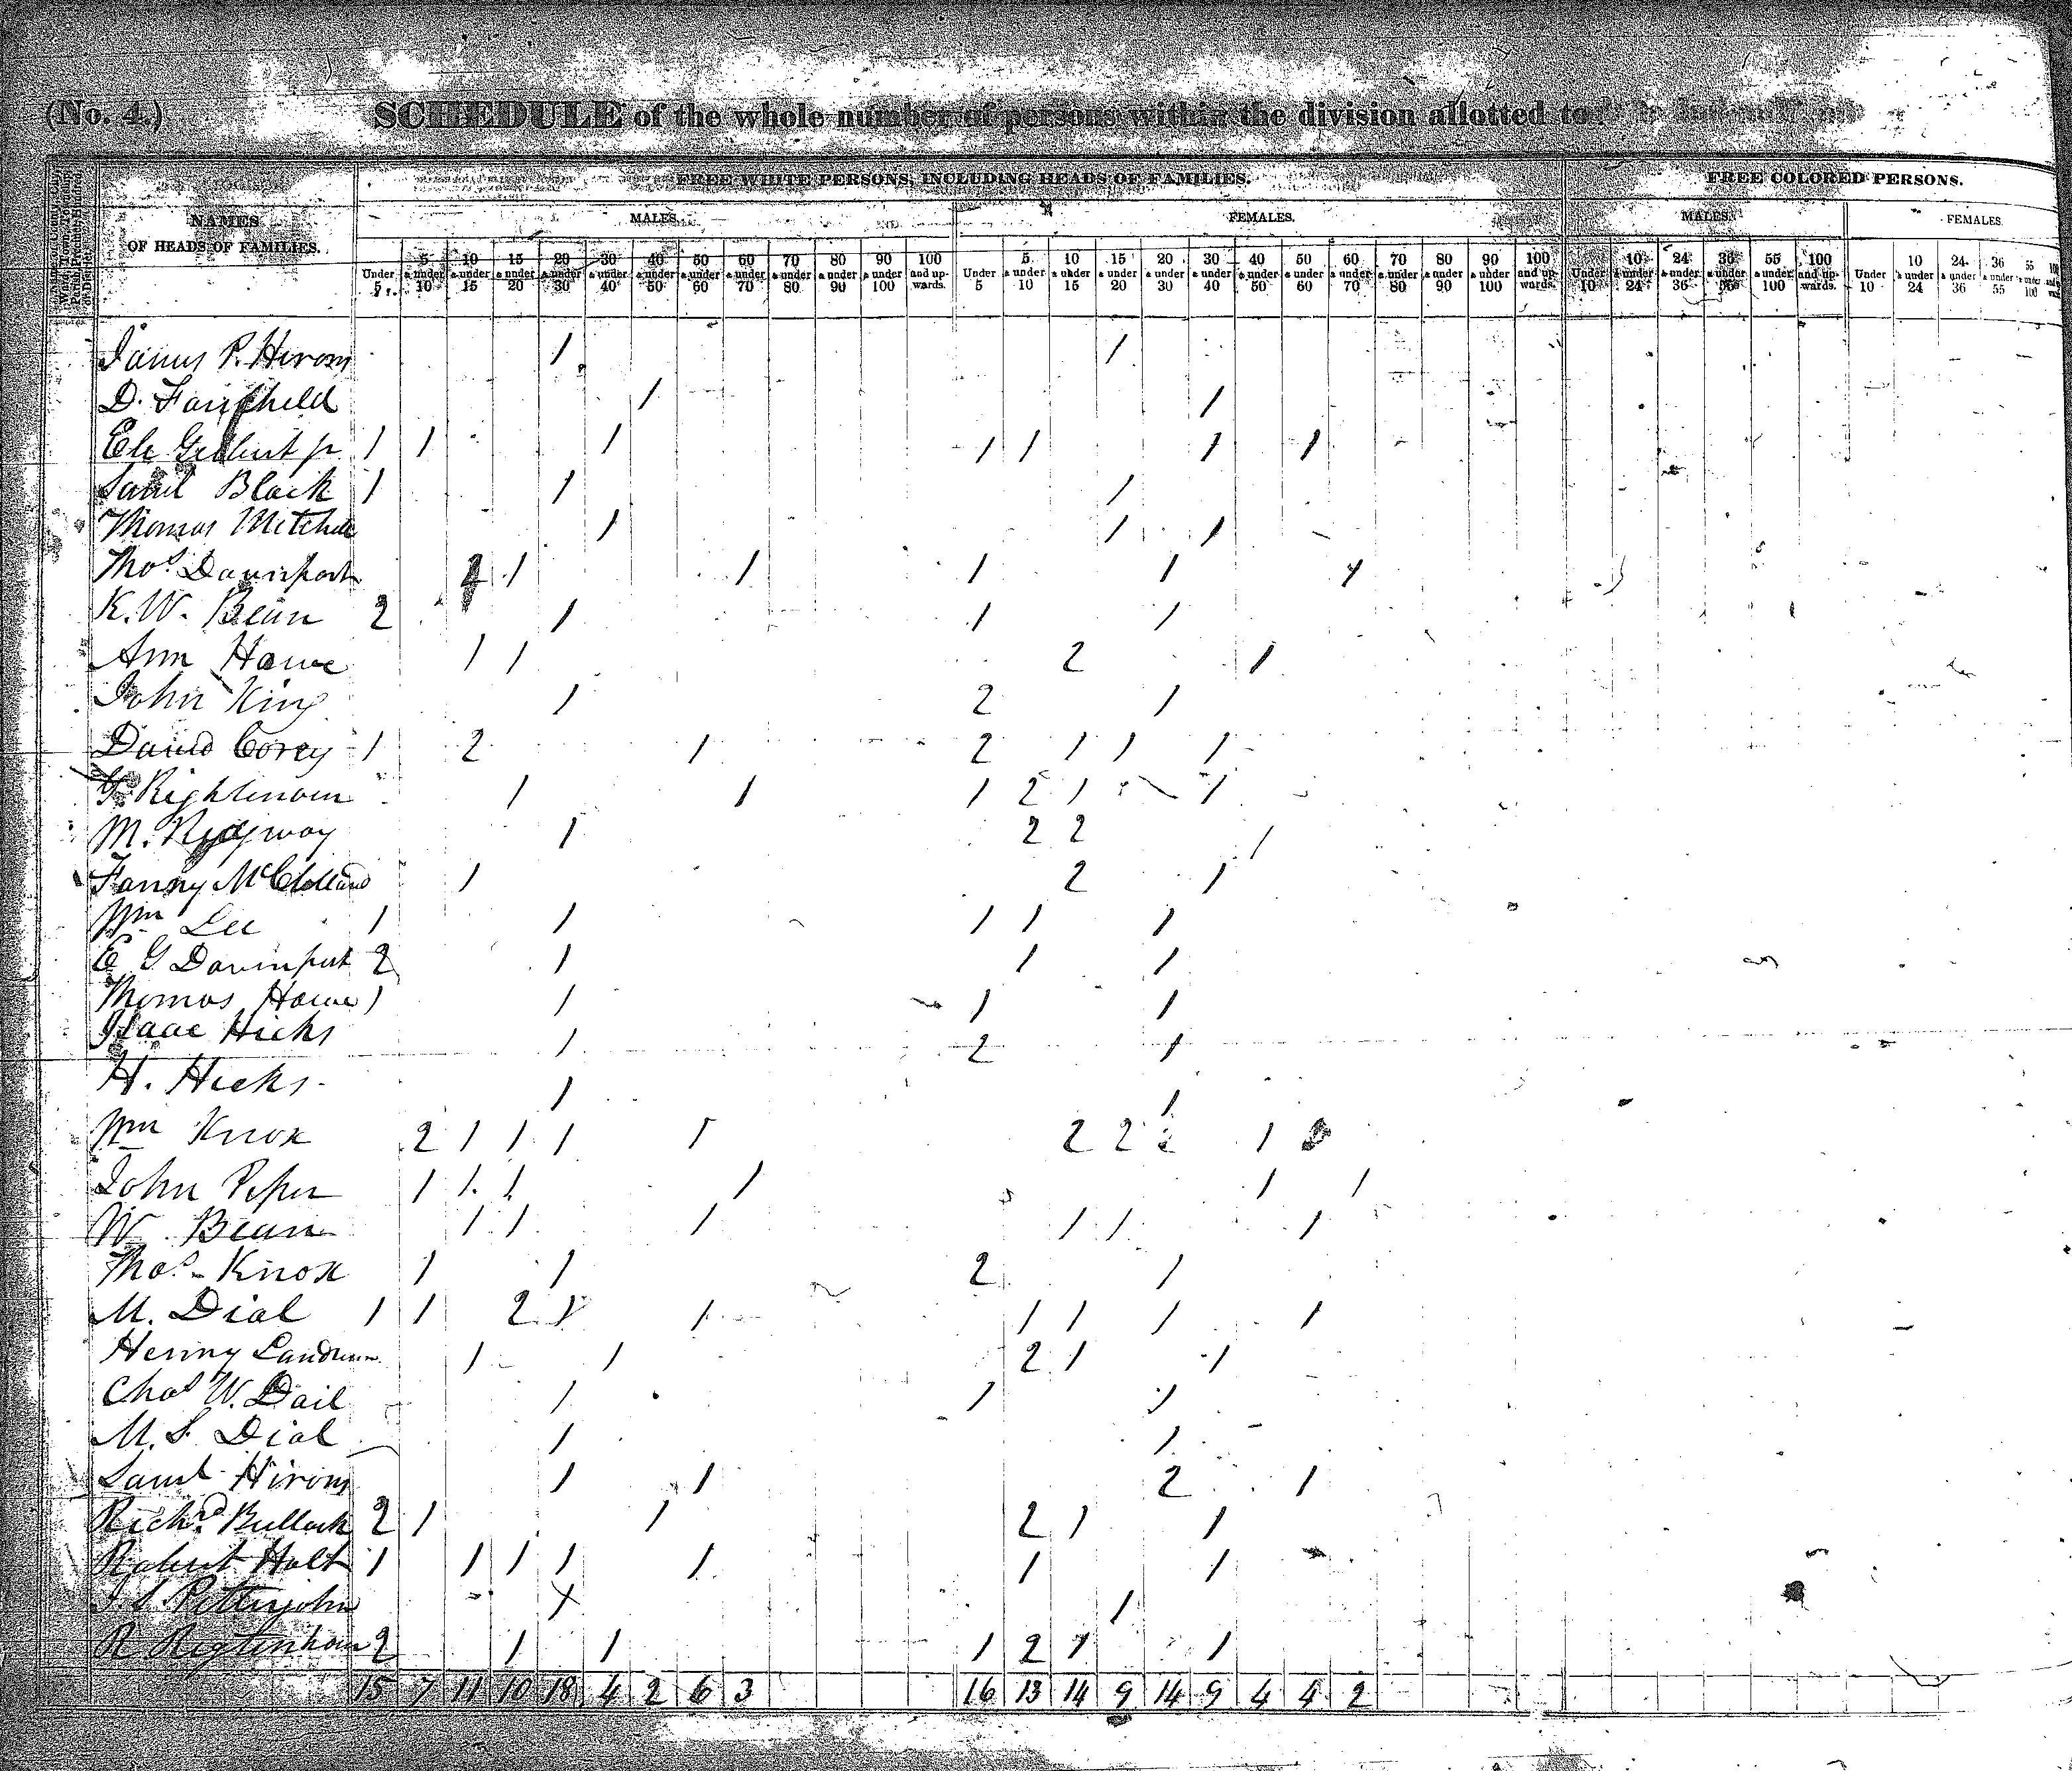 (No. 4.) SCHEDULE of the whole number of persons within the division allotted to
FREE WHITE PERSONS, INCLUDING HEADS OF FAMILIES. FREE COLORED PERSONS.
NAMES OF HEADS OF FAMILIES. MALES. FEMALES. MALES. FEMALES.
5 10 15 20 30 40 50 60 70 80 90 100 5 10 15 20 30 40 50 60 70 80 90 100 10 24 36 55 100 10 24 36 55
Under & under & under & under & under & under & under & under & under & under & under & under and up- Under & under & under & under & under & under & under & under & under & under & under & under and up- Under & under & under & under & under and up- Under & under & under & under & under
5 10 15 20 30 40 50 60 70 80 90 100 wards. 5 10 15 20 30 40 50 60 70 80 90 100 wards. 10 24 36 55 100 wards. 10 24 36 55 100
James P. Hirom 1 1
D. Fairchild 1 1
Eli Gilbert jr 1 1 1 1 1 1 1
Saml Black 1 1 1
Thomas Mitchell 1 1 1
Thos Davenport 2 1 1 1 1 1
K. W. Bean 2 1 1 1
Ann Howe 1 1 2 1
John King 1 2 1
David Corey 1 2 1 2 1 1 1
Rightenour 1 1 1 2 1 1
M. Ridgway 1 2 2 1
Fanny McClelland 1 2 1
Wm Lee 1 1 1 1 1
E G Davenport 2 1 1 1
Thomas Howe 1 1 1 1
Isaac Hicks 1 2 1
H. Hicks 1 1
Wm Knox 2 1 1 1 1 2 2 2 1
John Piper 1 1 1 1 1 1
W Bean 1 1 1 1 1 1
Thos Knox 1 1 2 1
M. Dial 1 1 2 1 1 1 1 1 1
Henry Landrum 1 1 2 1 1
Chas W. Dail 1 1 1
M. S. Dial 1 1
Saml Hirom 1 1 2 1
Richd Bullock 2 1 1 2 1 1
Robert Holt 1 1 1 1 1 1 1
J. S. Pettyjohn 1 1
R Rigtenhour 2 1 1 1 2 1 1
15 7 11 10 18 4 2 6 3 16 13 14 9 14 9 4 4 2